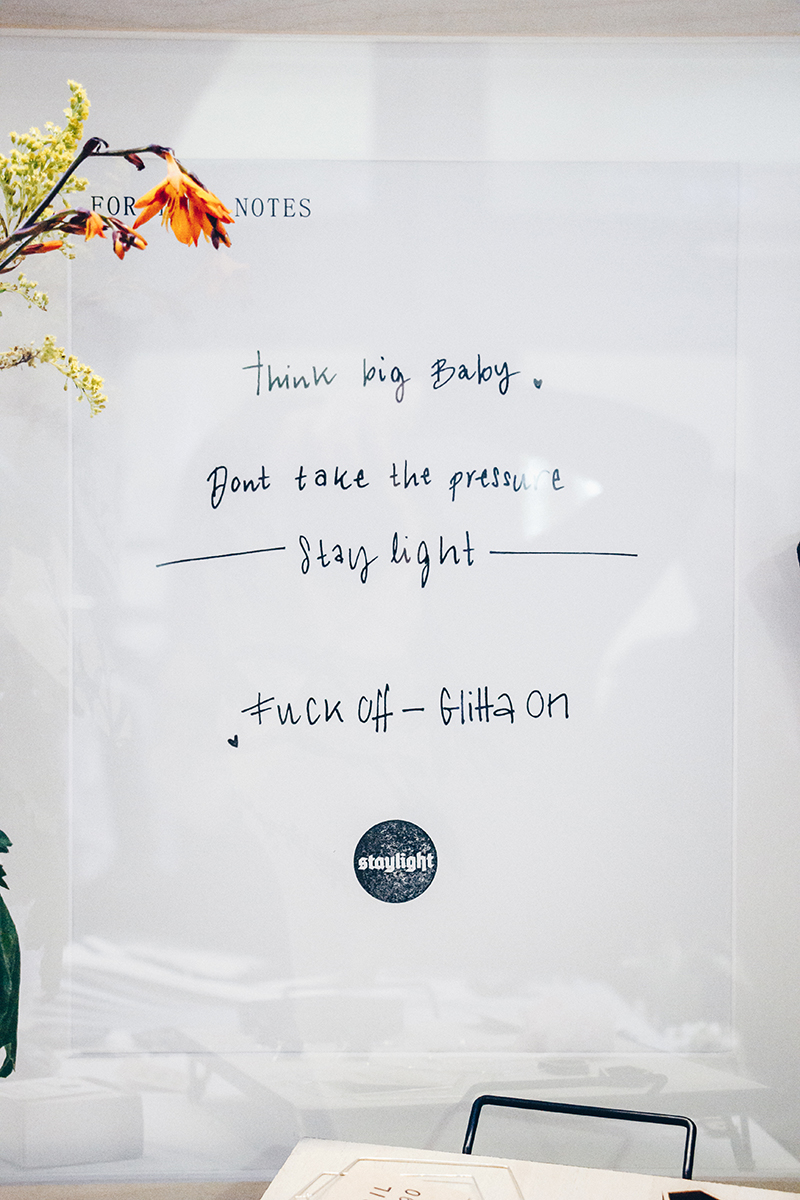 FOR NOTES
think big Baby
Dont take the pressure
Stay light
Fuck Off - Glitta On
staylight
IL